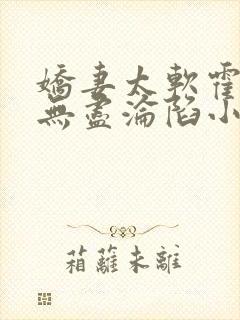 嬌妻太軟霍
無盡淪陷小
箱蘺未離